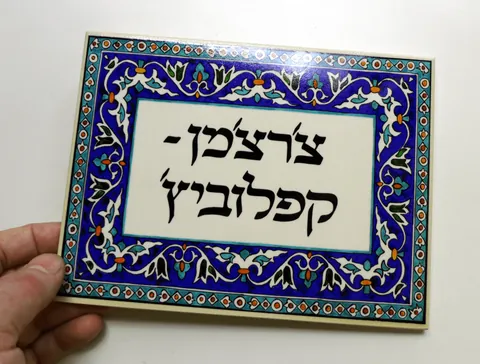 צ'רצ'מן-
קפלוביץ'